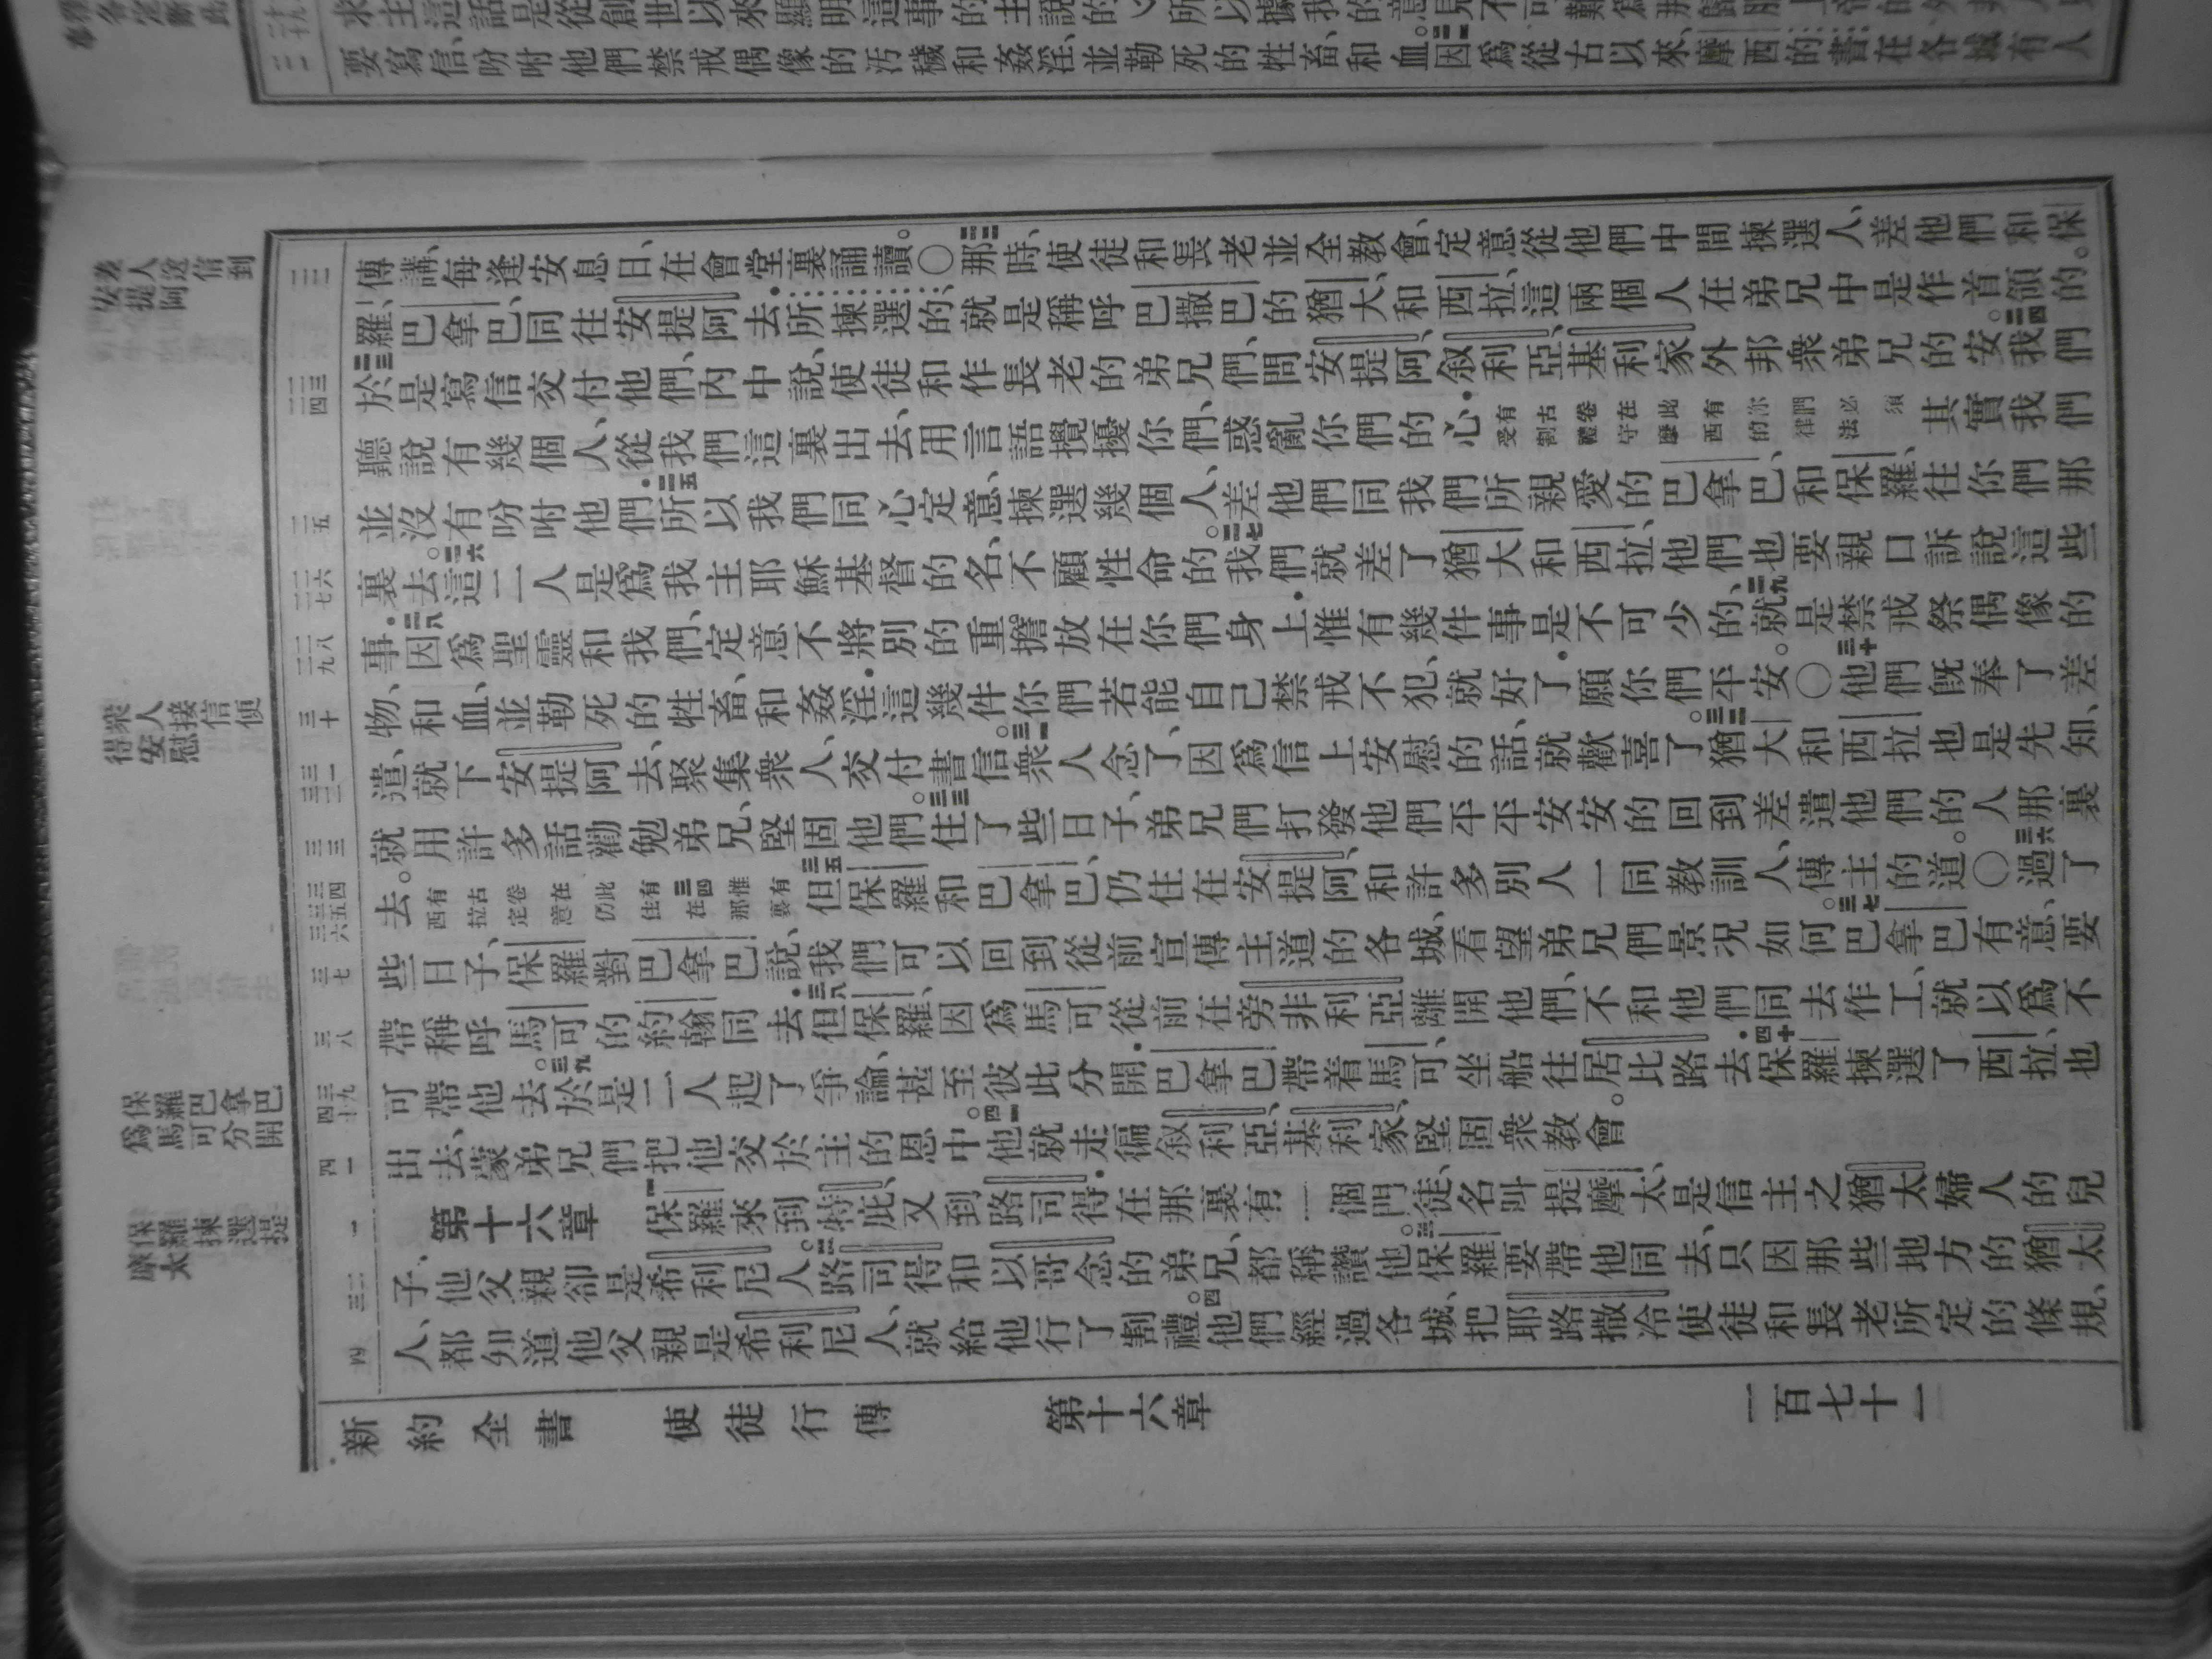 要寫信、吩咐他們禁戒偶像的污穢和姦淫、並勒死的牲畜、和血。因爲從古以來、摩西的書在各城有人
傳講、每逢安息日、在會堂裏誦讀。〇那時、使徒和長老並全教會、定意從他們中間揀選人、差他們和保
羅、巴拿巴、同往安提阿去．所揀選的、就是稱呼巴撒巴的猶大、和西拉、這兩個人在弟兄中是作首領的。
於是寫信交付他們、內中說、使徒和作長老的弟兄們、問安提阿、叙利亞、基利家外邦衆弟兄的安。我們
聽說有幾個人、從我們這裏出去、用言語攪擾你們、惑亂你們的心．有古卷在此有你們必須受割禮守摩西的律法其實我們
並沒有吩咐他們．所以我們同心定意、揀選幾個人、差他們同我們所親愛的巴拿巴、和保羅、往你們那
裏去。這二人是爲我主耶穌基督的名、不顧性命的。我們就差了猶大和西拉、他們也要親口訴說這些
事．因爲聖靈和我們、定意不將別的重擔放在你們身上．惟有幾件事是不可少的、就是禁戒祭偶像的
物、和血、並勒死的牲畜、和姦淫．這幾件你們若能自己禁戒不犯、就好了．願你們平安。〇他們既奉了差
遣、就下安提阿去、聚集衆人、交付書信。衆人念了、因爲信上安慰的話、就歡喜了。猶大和西拉也是先知、
就用許多話勸勉弟兄、堅固他們。住了些日子、弟兄們打發他們平平安安的回到差遣他們的人那裏
去。有古卷在此有惟有西拉定意仍住在那裏但保羅和巴拿巴、仍住在安提阿、和許多別人一同教訓人、傳主的道。〇過了
些日子、保羅對巴拿巴說、我們可以回到從前宣傳主道的各城、看望弟兄們景况如何。巴拿巴有意、要
帶稱呼馬可的約翰同去．但保羅、因爲馬可從前在旁非利亞離開他們、不和他們同去作工、就以爲不
可帶他去。於是二人起了爭論、甚至彼此分開．巴拿巴帶着馬可、坐船往居比路去．保羅揀選了西拉、也
出去、蒙弟兄們把他交於主的恩中。他就走徧叙利亞、基利家、堅固衆教會。
第十六章 保羅來到特庇、又到路司得．在那裏有一個門徒、名叫提摩太、是信主之猶太婦人的兒
子、他父親卻是希利尼人。路司得和以哥念的弟兄、都稱讚他。保羅要帶他同去、只因那些地方的猶太
人、都知道他父親是希利尼人、就給他行了割禮。他們經過各城、把耶路撒冷使徒和長老所定的條規、
新約全書 使徒行傳 第十六章 一百七十一
安提阿
人送信到
衆人接信便
得安慰
保羅巴拿巴
爲馬可分開
保羅揀選提
摩太